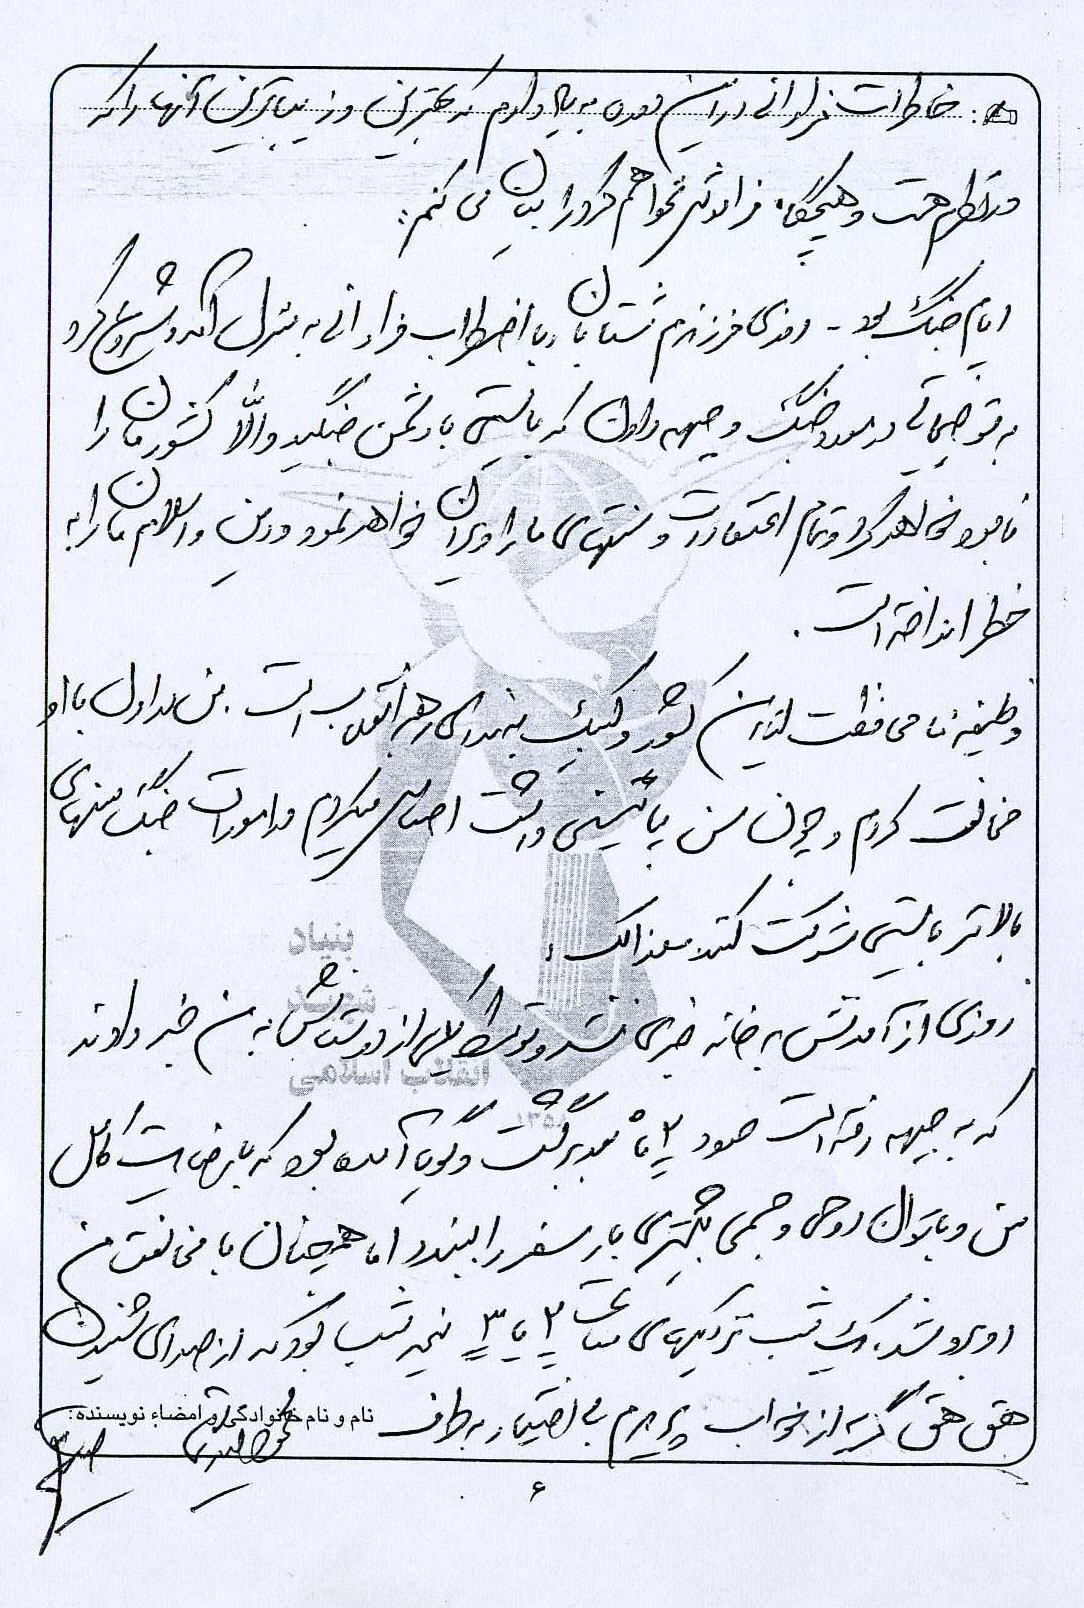 خاطرات فراوانی در این مورد به یاد دارم که بهترین و زیباترین آنها را که
در نظرم هست و هیچگاه فراموش نخواهم کرد را بیان می کنم:
ایام جنگ بود - روزی فرزندم شتابان با اضطراب فراوانی به منزل آمد و شروع کرد
به توضیحاتی در مورد جنگ و جبهه دادن که بایستی با دشمن جنگید والا کشورمان را
نابود خواهد کرد و تمام اعتقادات و سنتهای ما را ویران خواهد نمود و دین و اسلام ما را به
خطر انداخته است.
وظیفه ما محافظت از این کشور و لبیک به ندای رهبر انقلاب است. من ابداول با او
مخالفت کردم و چون سن پائینی داشت احساس میکردم در امورات جنگ سنهای
بالاتر بایستی شرکت کنند معذالک،
روزی از آمدنش به خانه خبری نشد و توسط یکی از دوستانش به من خبر دادند
که به جبهه رفته است حدود ۲ ماه بعد برگشت و گویا آمده بود که با رضایت کامل
من و با توان روحی و جسمی بیشتری بار سفر را ببندد اما همچنان با مخالفت من
روبرو شد، یک شب نزدیکهای ساعت ۲ یا ۳ نیمه شب بود که از صدای شنیدن
هق هق گریه از خواب پریدم بی اختیار به طرف
نام و نام خانوادگی و امضاء نویسنده:
۶
بنیاد
شهید
انقلاب اسلامی